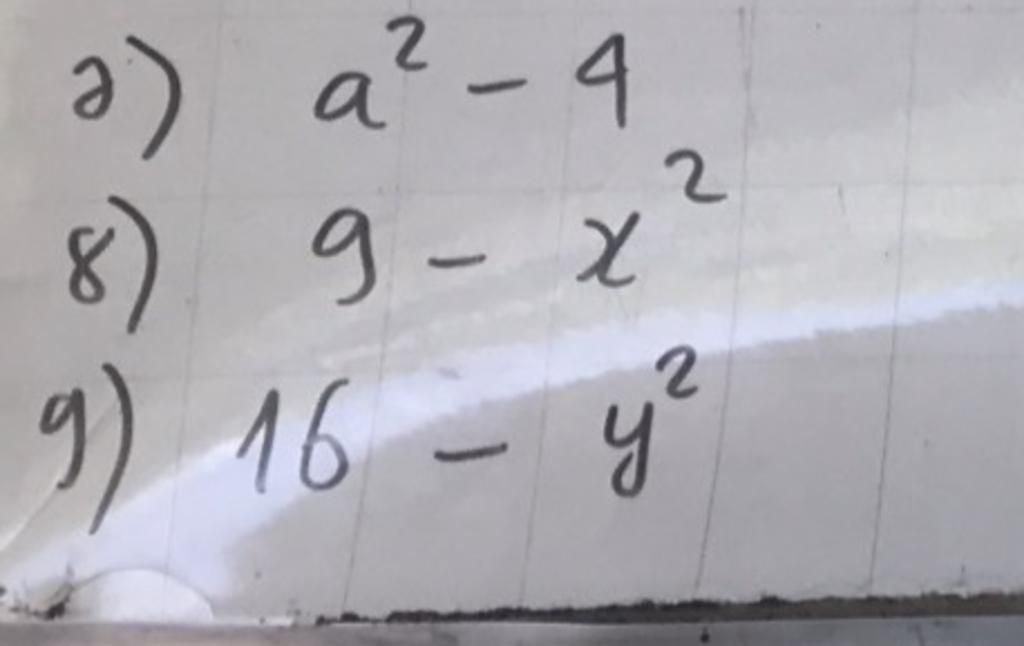 2) a² - 4
8) 9 - x²
9) 16 - y²